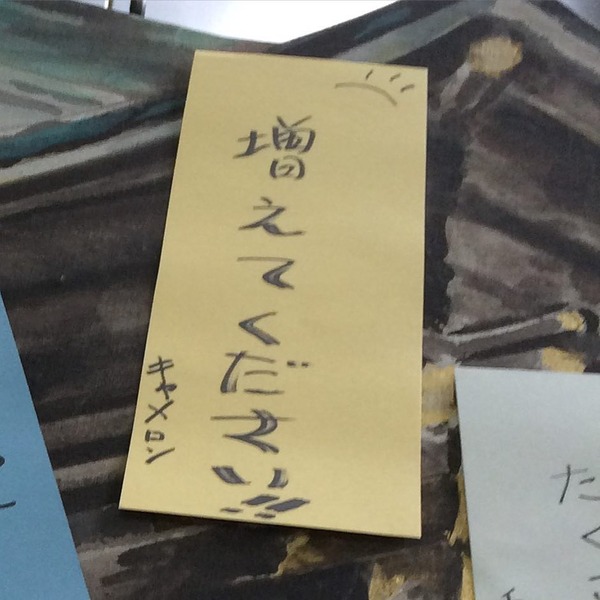 増えてください
キャメロン
た
く